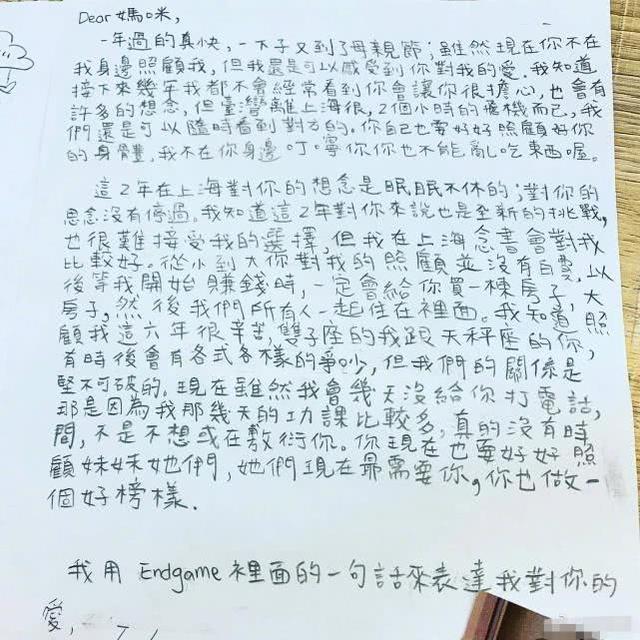 Dear 媽咪,
一年過的真快,一下子又到了母親節;雖然現在你不在
我身邊照顧我,但我還是可以感受到你對我的愛.我知道
接下來幾年我都不會經常看到你會讓你很擔心,也會有
許多的想念,但臺灣離上海很,2個小時的飛機而已,我
們還是可以隨時看到對方的.你自己也要好好照顧好你
的身體,我不在你身邊叮嚀你你也不能亂吃東西喔。
這2年在上海對你的想念是眠眠不休的;對你的
思念沒有停過。我知道這2年對你來說也是全新的挑戰,
也很難接受我的選擇,但我在上海念書會對我
比較好。從小到大你對我的照顧並沒有白費,以
後等我開始賺錢時,一定會給你買一棟房子,大
房子,然後我們所有人一起住在裡面。我知道照
顧我這六年很辛苦,雙子座的我跟天秤座的你,
有時後會有各式各樣的爭吵,但我們的關係是
堅不可破的.現在雖然我會幾天沒給你打電話,
那是因為我那幾天的功課比較多,真的沒有時
間,不是不想或在敷衍你。你現在也要好好照
顧妹妹她們,她們現在最需要你,你也做一
個好榜樣.
我用 Endgame 裡面的一句話來表達我對你的
愛,